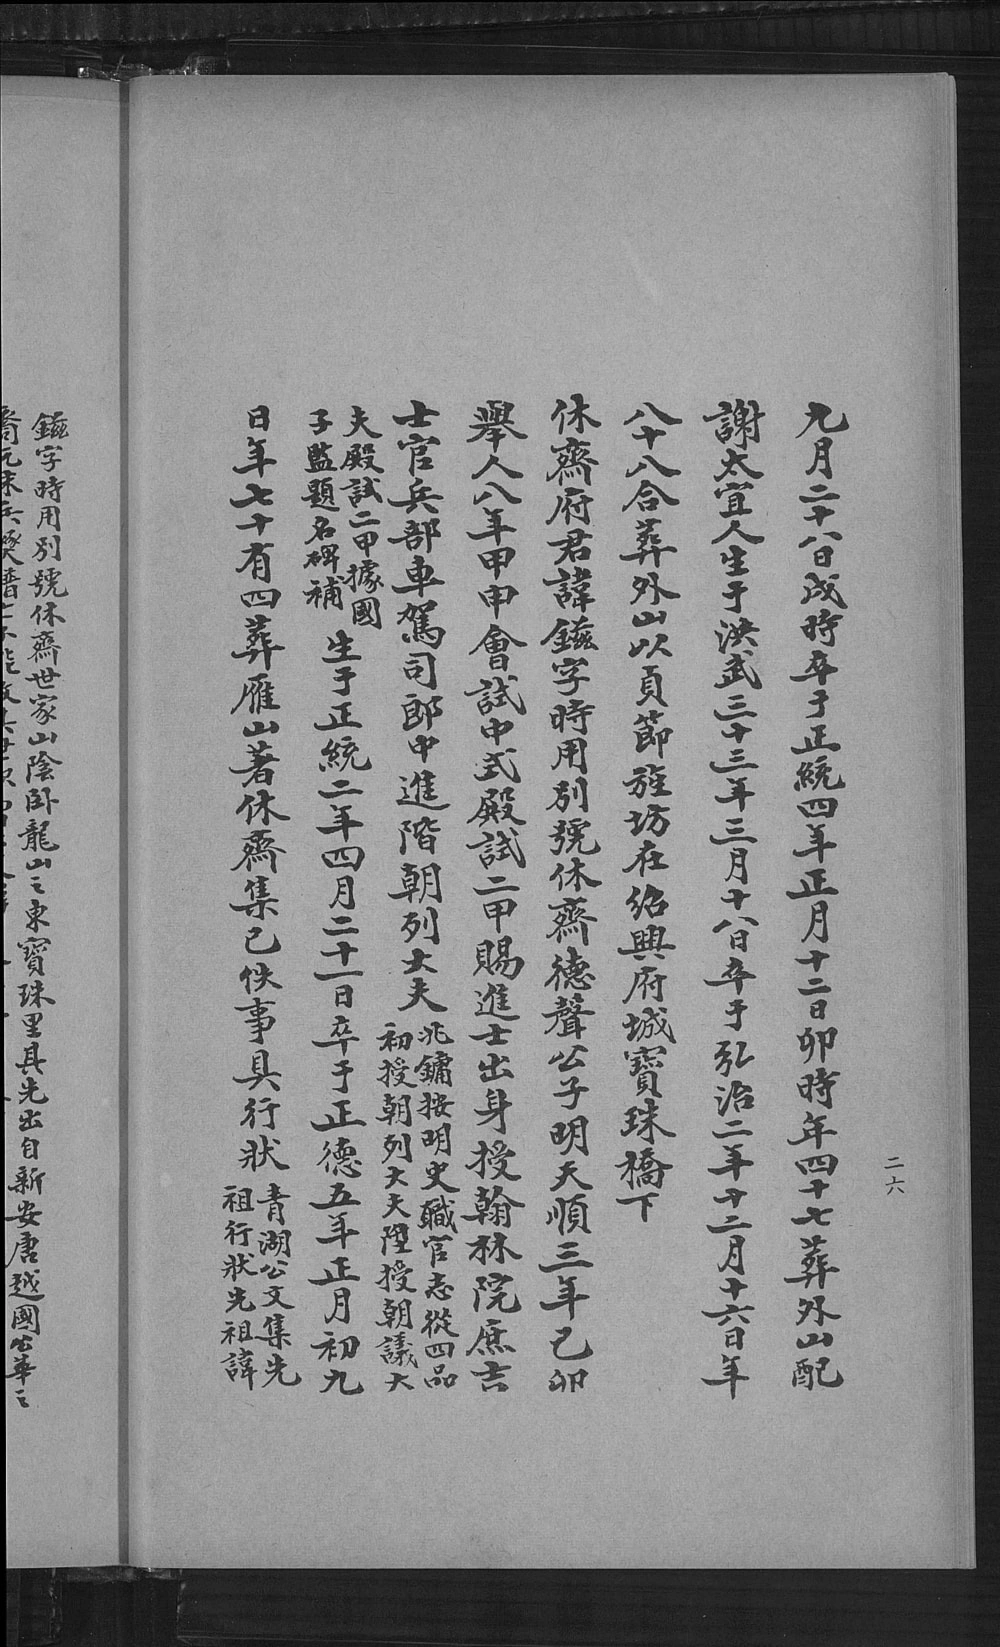 九月二十八日戌時卒于正統四年正月十二日卯時年四十七葬外山配
謝太宜人生于洪武三十三年三月十八日卒于弘治二年十二月十六日年
八十八合葬外山以貞節旌坊在紹興府城寶珠橋下
休齋府君諱鎡字時用別號休齋德聲公子明天順三年己卯
舉人八年甲申會試中式殿試二甲賜進士出身授翰林院庶吉
士官兵部車駕司郎中進階朝列大夫
兆鏞按明史職官志從四品
初授朝列大夫陞授朝議大
夫殿試二甲據國
子監題名碑補
生于正統二年四月二十一日卒于正德五年正月初九
日年七十有四葬雁山著休齋集已佚事具行狀
青湖公文集先
祖行狀先祖諱
二六
鎡字時用別號休齋世家山陰臥龍山之東寶珠里其先出自新安唐越國公華之
裔元末兵燹譜亡不能